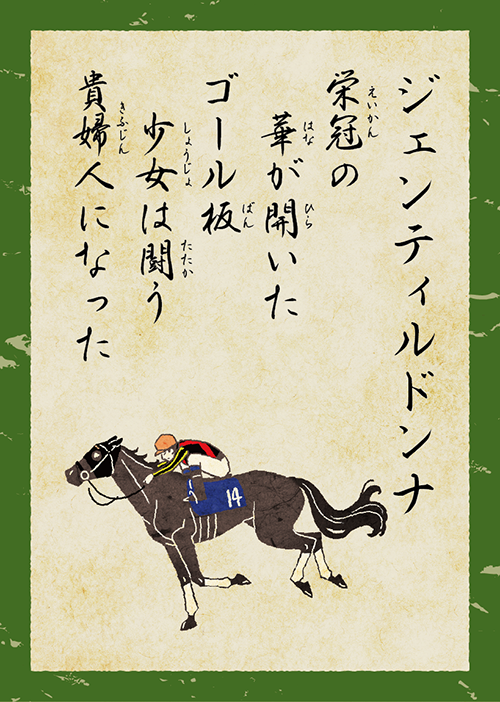 ジェンティルドンナ
栄冠の
えいかん
華が開いた
はな
ひら
ゴール板
ばん
少女は闘う
しょうじょ
たたか
貴婦人になった
きふじん
14